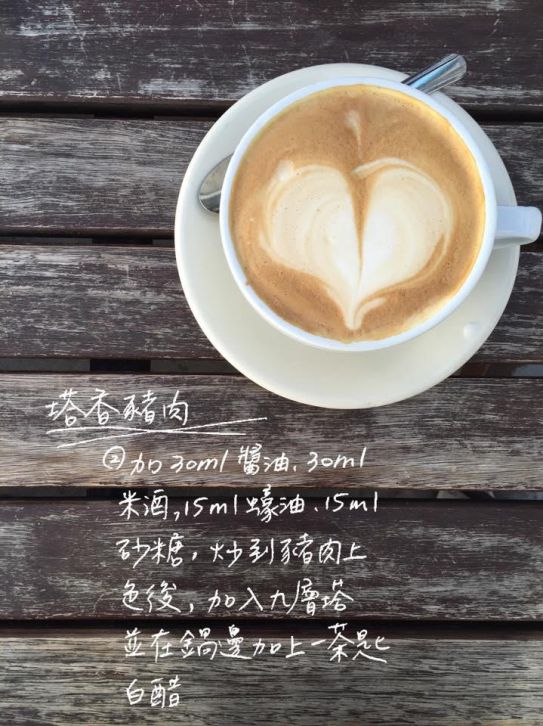 塔香豬肉
②加30ml醬油、30ml
米酒,15ml蠔油、15ml
砂糖,炒到豬肉上
色後,加入九層塔
並在鍋邊加上一茶匙
白醋